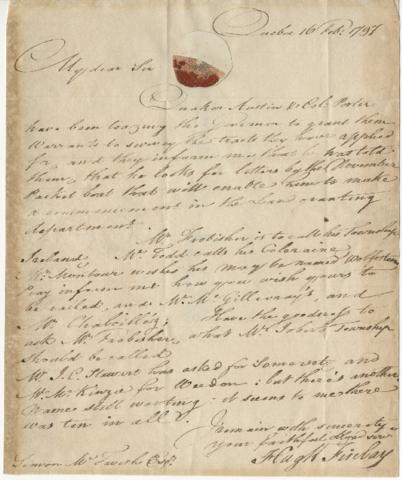 Quebec 16 Feb. 1797
My dear Sir
Quaker Austin & Col. Porter
have been teazing the Governor to grant them
Warrants to survey the tracts they have applied
for, and they inform me that he has told
them, that he looks for letters by the December
Packet boat that will enable him to make
a commencement in the Land granting
department.
Mr. Frobisher is to call his Township
Ireland, Mr. Todd calls his Coloraine
Mr. Montour wishes his may be named Wolfestown
Pray inform me how you wish yours to
be called, and Mr. McGillevray's, and
Mr. Chaboillez; Have the goodness to
ask Mr. Frobisher, what Mr. Joberts Township
should be called
Mr. J. C. Stewart has asked for Somerset, and
Mr. McKenzie for Weedon: but there's another
Name still wanting: it seems to me there
was ten in all?
I remain with sincerity
your faithful Hble Serv
Hugh Finlay
Simon McTavish Esqr.